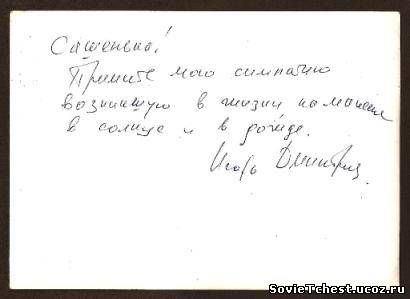 Сашенька!
Примите мою симпатию
возникшую в жизни
в солнце и в дожде.
Игорь Дмитриев
SovieTchest.ucoz.ru